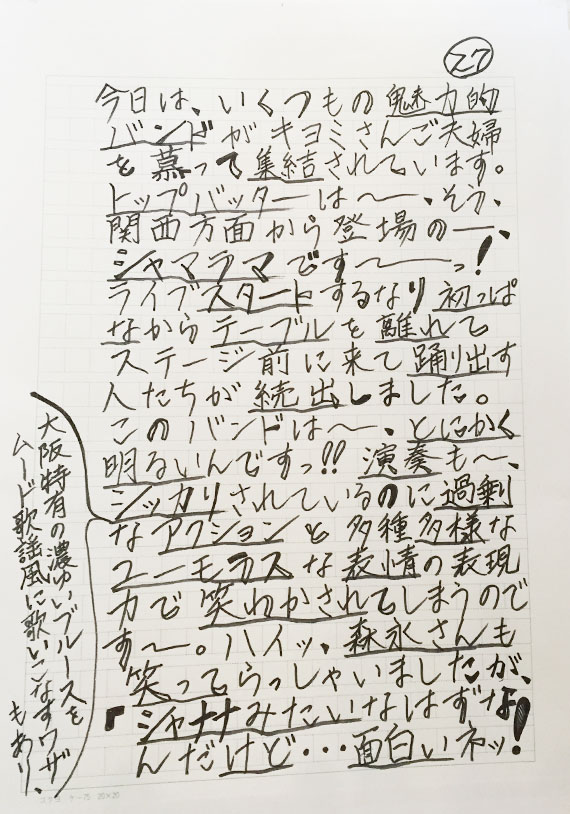 27
今日は、いくつもの魅力的
バンドがキヨミさんご夫婦
を慕って集結されています。
トップバッターは〜〜、そう、
関西方面から登場の―、
シャマラマです〜〜っ!
ライブスタートするなり初っぱ
なからテーブルを離れて
ステージ前に来て踊り出す
人たちが続出しました。
このバンドは〜〜、とにかく
明るいんですっ!! 演奏も〜、
シッカリされているのに過剰
なアクションと多種多様な
ユーモラスな表情の表現
力で笑わかされてしまうので
す〜。ハイッ、森永さんも
笑ってらっしゃいましたが、
「シャナナみたいなはずな
んだけど・・・面白いネッ!
大阪特有の濃ゆいブルースを
ムード歌謡風に歌いこなすワザ
もあり、
コクヨ ケ-75 20×20